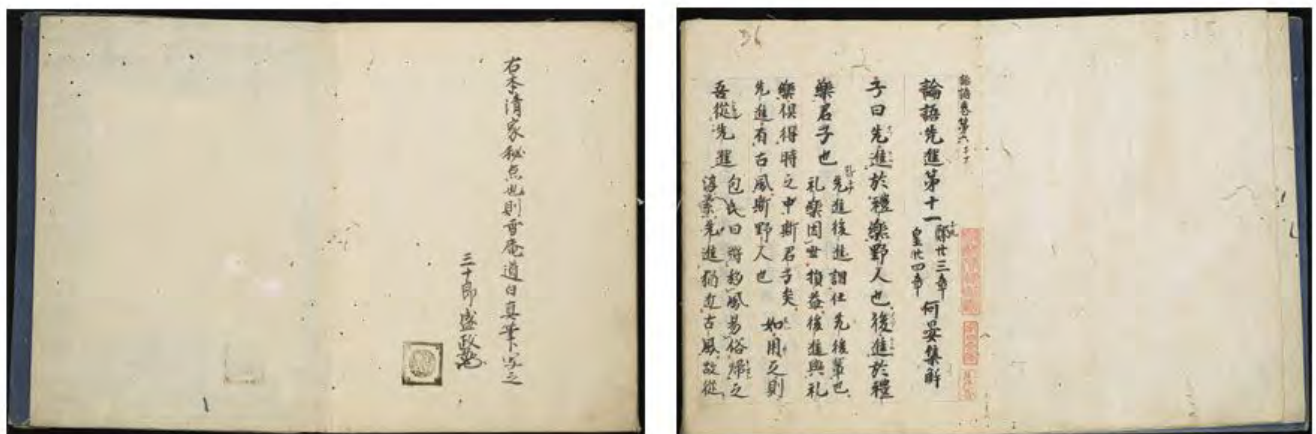 右本清家秘点也則雪庵道白真筆写之
三十郎盛政
36
論語先進第十一
疏廿三章
皇廿四章
何晏集解
子曰先進於禮樂野人也後進於禮
樂君子也
先進後進謂仕先後輩也
礼樂因世損益後進與礼
樂俱得時之中斯君子矣
先進有古風斯野人也
如用之則
吾從先進
包氏曰將移風易俗歸之
淳素先進猶近古風故從